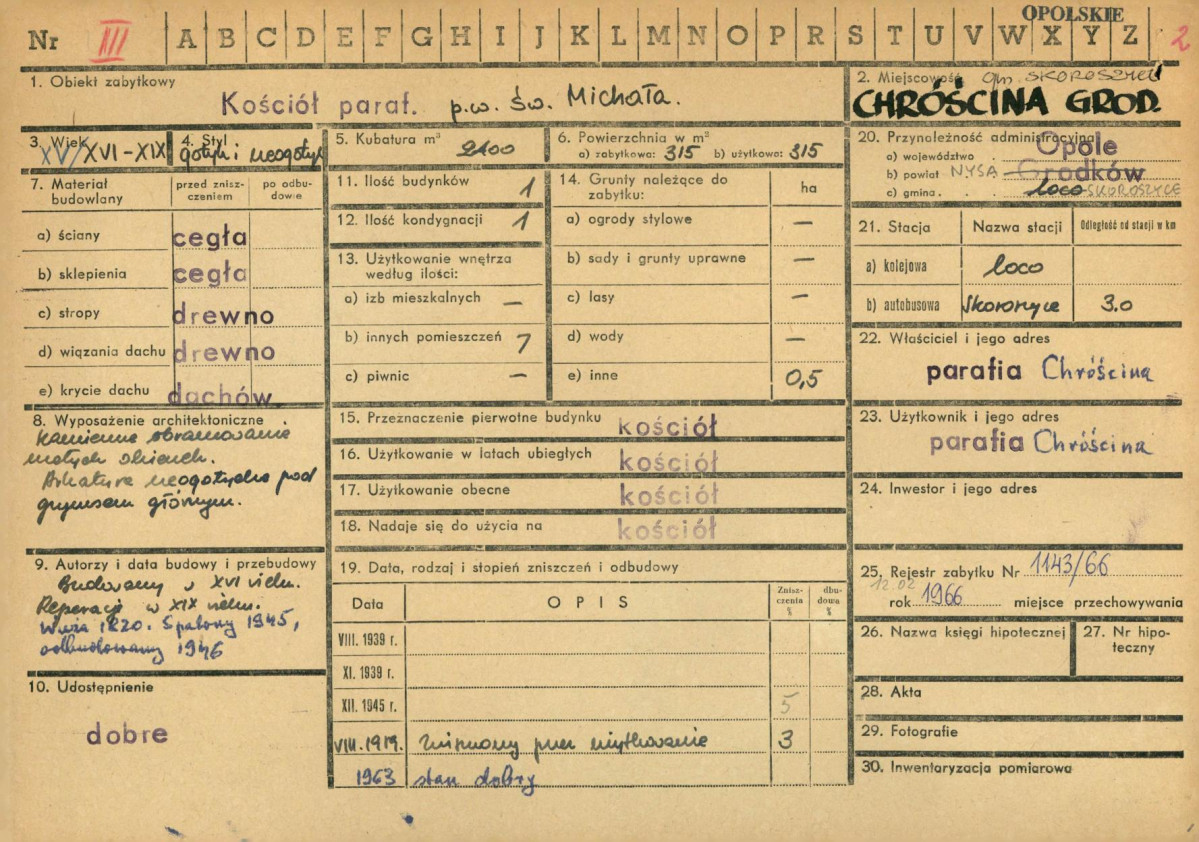 OPOLSKIE
Nr III A B C D E F G H I J K L M N O P R S T U V W X Y Z 2
1. Obiekt zabytkowy
Kościół paraf. p.w. św. Michała.
2. Miejscowość gm. SKOROSZYCE
CHRÓŚCINA GROD.
3. Wiek
XV/XVI-XIX
4. Styl
gotyk i neogotyk
5. Kubatura m³ 2100
6. Powierzchnia w m²
a) zabytkowa: 315 b) użytkowa: 315
7. Materiał budowlany
przed zniszczeniem
po odbudowie
a) ściany cegła
b) sklepienia cegła
c) stropy drewno
d) wiązania dachu drewno
e) krycie dachu dachów.
8. Wyposażenie architektoniczne
Kamienne obramowanie
małych okienek.
Arkatura neogotycka pod
gzymsem głównym.
9. Autorzy i data budowy i przebudowy
Budowany w XVI wieku.
Reperacje w XIX wieku.
Wieża 1820. Spalony 1945,
odbudowany 1946
10. Udostępnienie
dobre
11. Ilość budynków 1
12. Ilość kondygnacji 1
13. Użytkowanie wnętrza
według ilości:
a) izb mieszkalnych –
b) innych pomieszczeń 7
c) piwnic –
14. Grunty należące do
zabytku:
ha
a) ogrody stylowe –
b) sady i grunty uprawne –
c) lasy –
d) wody –
e) inne 0,5
15. Przeznaczenie pierwotne budynku kościół
16. Użytkowanie w latach ubiegłych kościół
17. Użytkowanie obecne kościół
18. Nadaje się do użycia na kościół
19. Data, rodzaj i stopień zniszczeń i odbudowy
Data OPIS Zniszczenia % dbudowa %
VIII. 1939 r.
XI. 1939 r.
XII. 1945 r. 5
VIII. 1959. zniszczony przez użytkowanie 3
1963 stan dobry
20. Przynależność administracyjna
a) województwo Opole
b) powiat NYSA Grodków
c) gmina loco SKOROSZYCE
21. Stacja Nazwa stacji Odległość od stacji w km
a) kolejowa loco
b) autobusowa Skoroszyce 3.0
22. Właściciel i jego adres
parafia Chróścina
23. Użytkownik i jego adres
parafia Chróścina
24. Inwestor i jego adres
25. Rejestr zabytku Nr 1143/66
12.02
rok 1966 miejsce przechowywania
26. Nazwa księgi hipotecznej
27. Nr hipoteczny
28. Akta
29. Fotografie
30. Inwentaryzacja pomiarowa